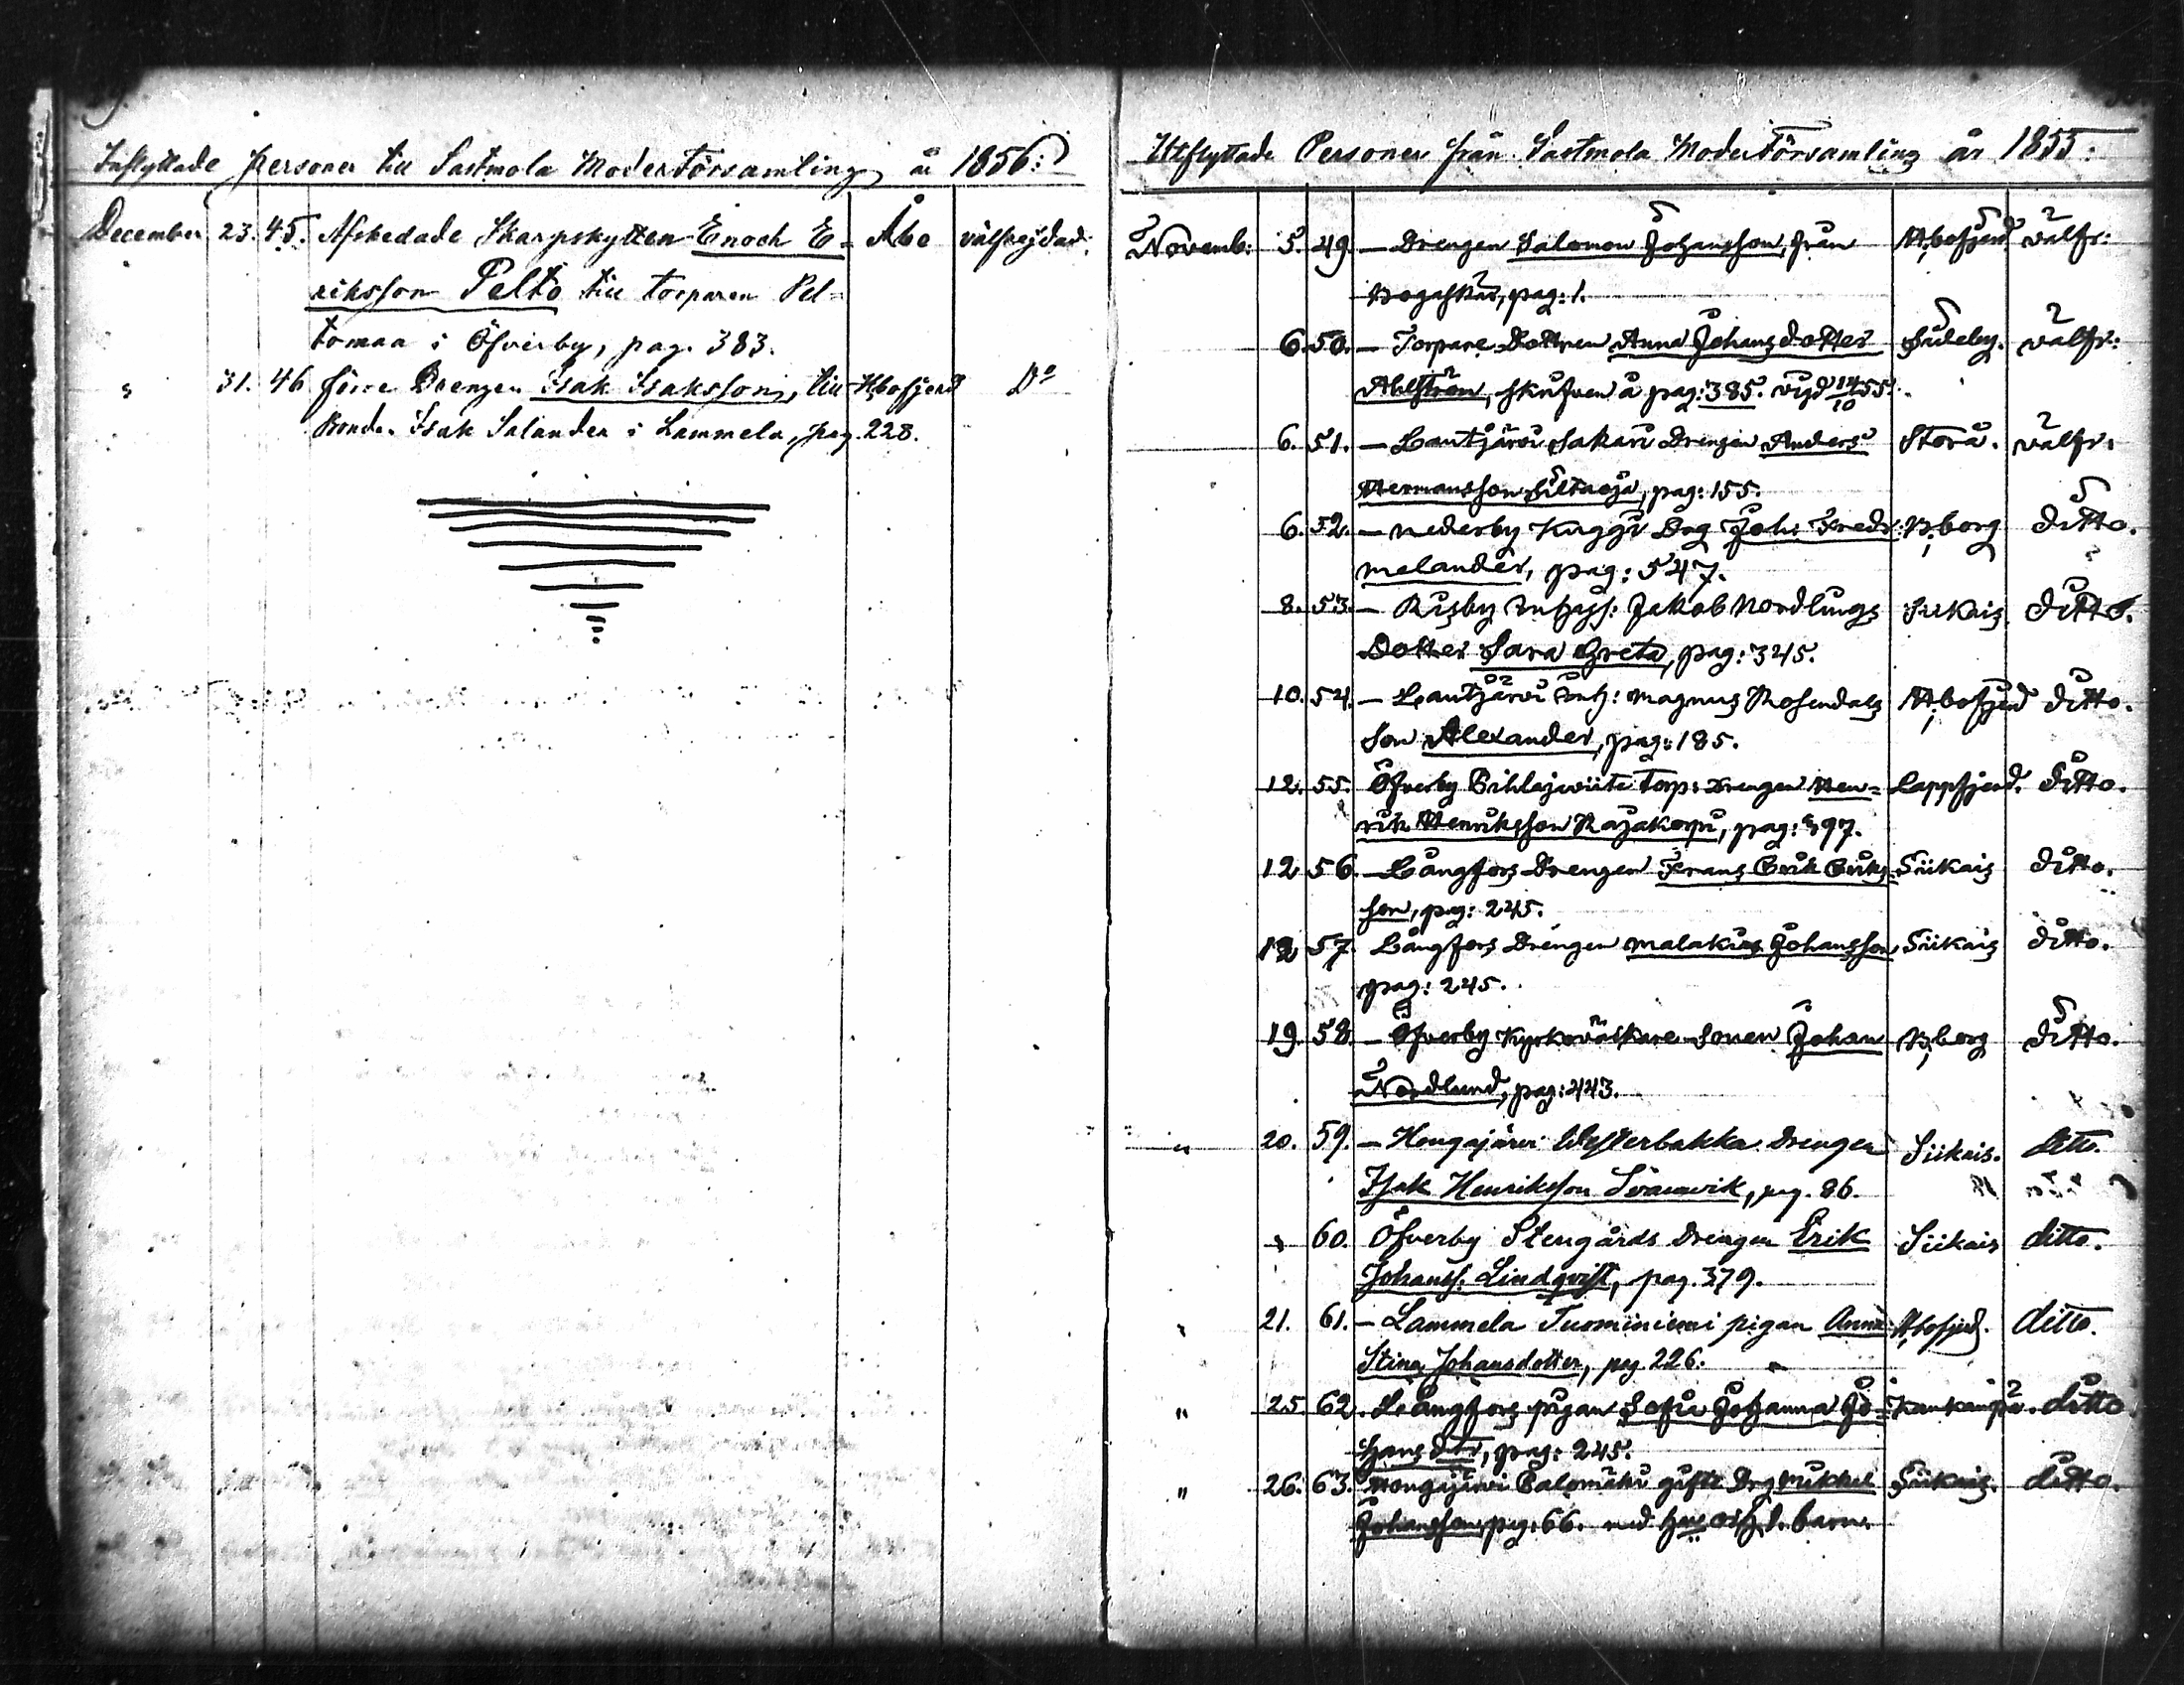 Inflyttade personer till Sastmola Moderförsamling år 1856:
December 23. 45. Afskedade Skarpskytten Enoch E= Åbo välfrejdad.
riksson Pelto till torparen Pel=
tomaa i Öfverby, pag. 383.
" 31. 46 förre Drengen Isak Isaksson, till Hbofjerd Do
Bonden Isak Salander i Lammela, pag. 228.
Utflyttade Personer från Sastmola Moderförsamling år 1855.
Novemb: 5. 49. — Drengen Salomon Johansson, från Hbofjerd välfr:
pag: 1.
6. 50. — Torpare Dottren Anna Johansdotter Sideby. välfr:
Ahlström, skrifven å pag: 385. vigd 14/10 55.
6. 51. — Lautjärvi Sakari Drengen Anders Storå. välfr.
Hermansson Siltaoja, pag: 155.
6. 52. — Nederby Kuggi Drg Joh: Fredr: Bborg ditto.
Melander, pag: 547.
8. 53. — Riisby Inhyss: Jakob Nordlings Siikais ditto.
Dotter Sara Greta, pag: 345.
10. 54. — Lautjärvi Inh: Magnus Rosendals Hbofjerd ditto.
Son Alexander, pag: 185.
12. 55. Öfverby Pihlajaviita Torp: Drengen Hen= Lappfjerd. ditto.
rik Henriksson Rajakorpi, pag: 397.
12 56. — Långfors Drengen Frans Erik Eriks= Siikais ditto.
son, pag: 245.
12 57. Långfors Drengen Malakias Johansson, Siikais ditto.
pag: 245.
19. 58. — Öfverby Kyrkoväktare Sonen Johan Bborg ditto.
Nordlund, pag: 443.
" 20. 59. — Hongajärvi Westerbakka Drengen Siikais. ditto.
Isak Henriksson Svanvik, pag. 86.
" 60. Öfverby Stengårds Drengen Erik Siikais ditto.
Johanss. Lindqvist, pag. 379.
" 21. 61. — Lammela Tuominiemi pigan Anna Hbofjerd. ditto.
Stina Johansdotter, pag 226.
" 25. 62. Långfors pigan Sofia Johanna Jo= Kankanpä. ditto
hans dtr, pag: 245.
" 26. 63. Hongajärvi Palomäki gifte Drg Mikkel Siikais. ditto.
Johansson, pag. 66. med barn.